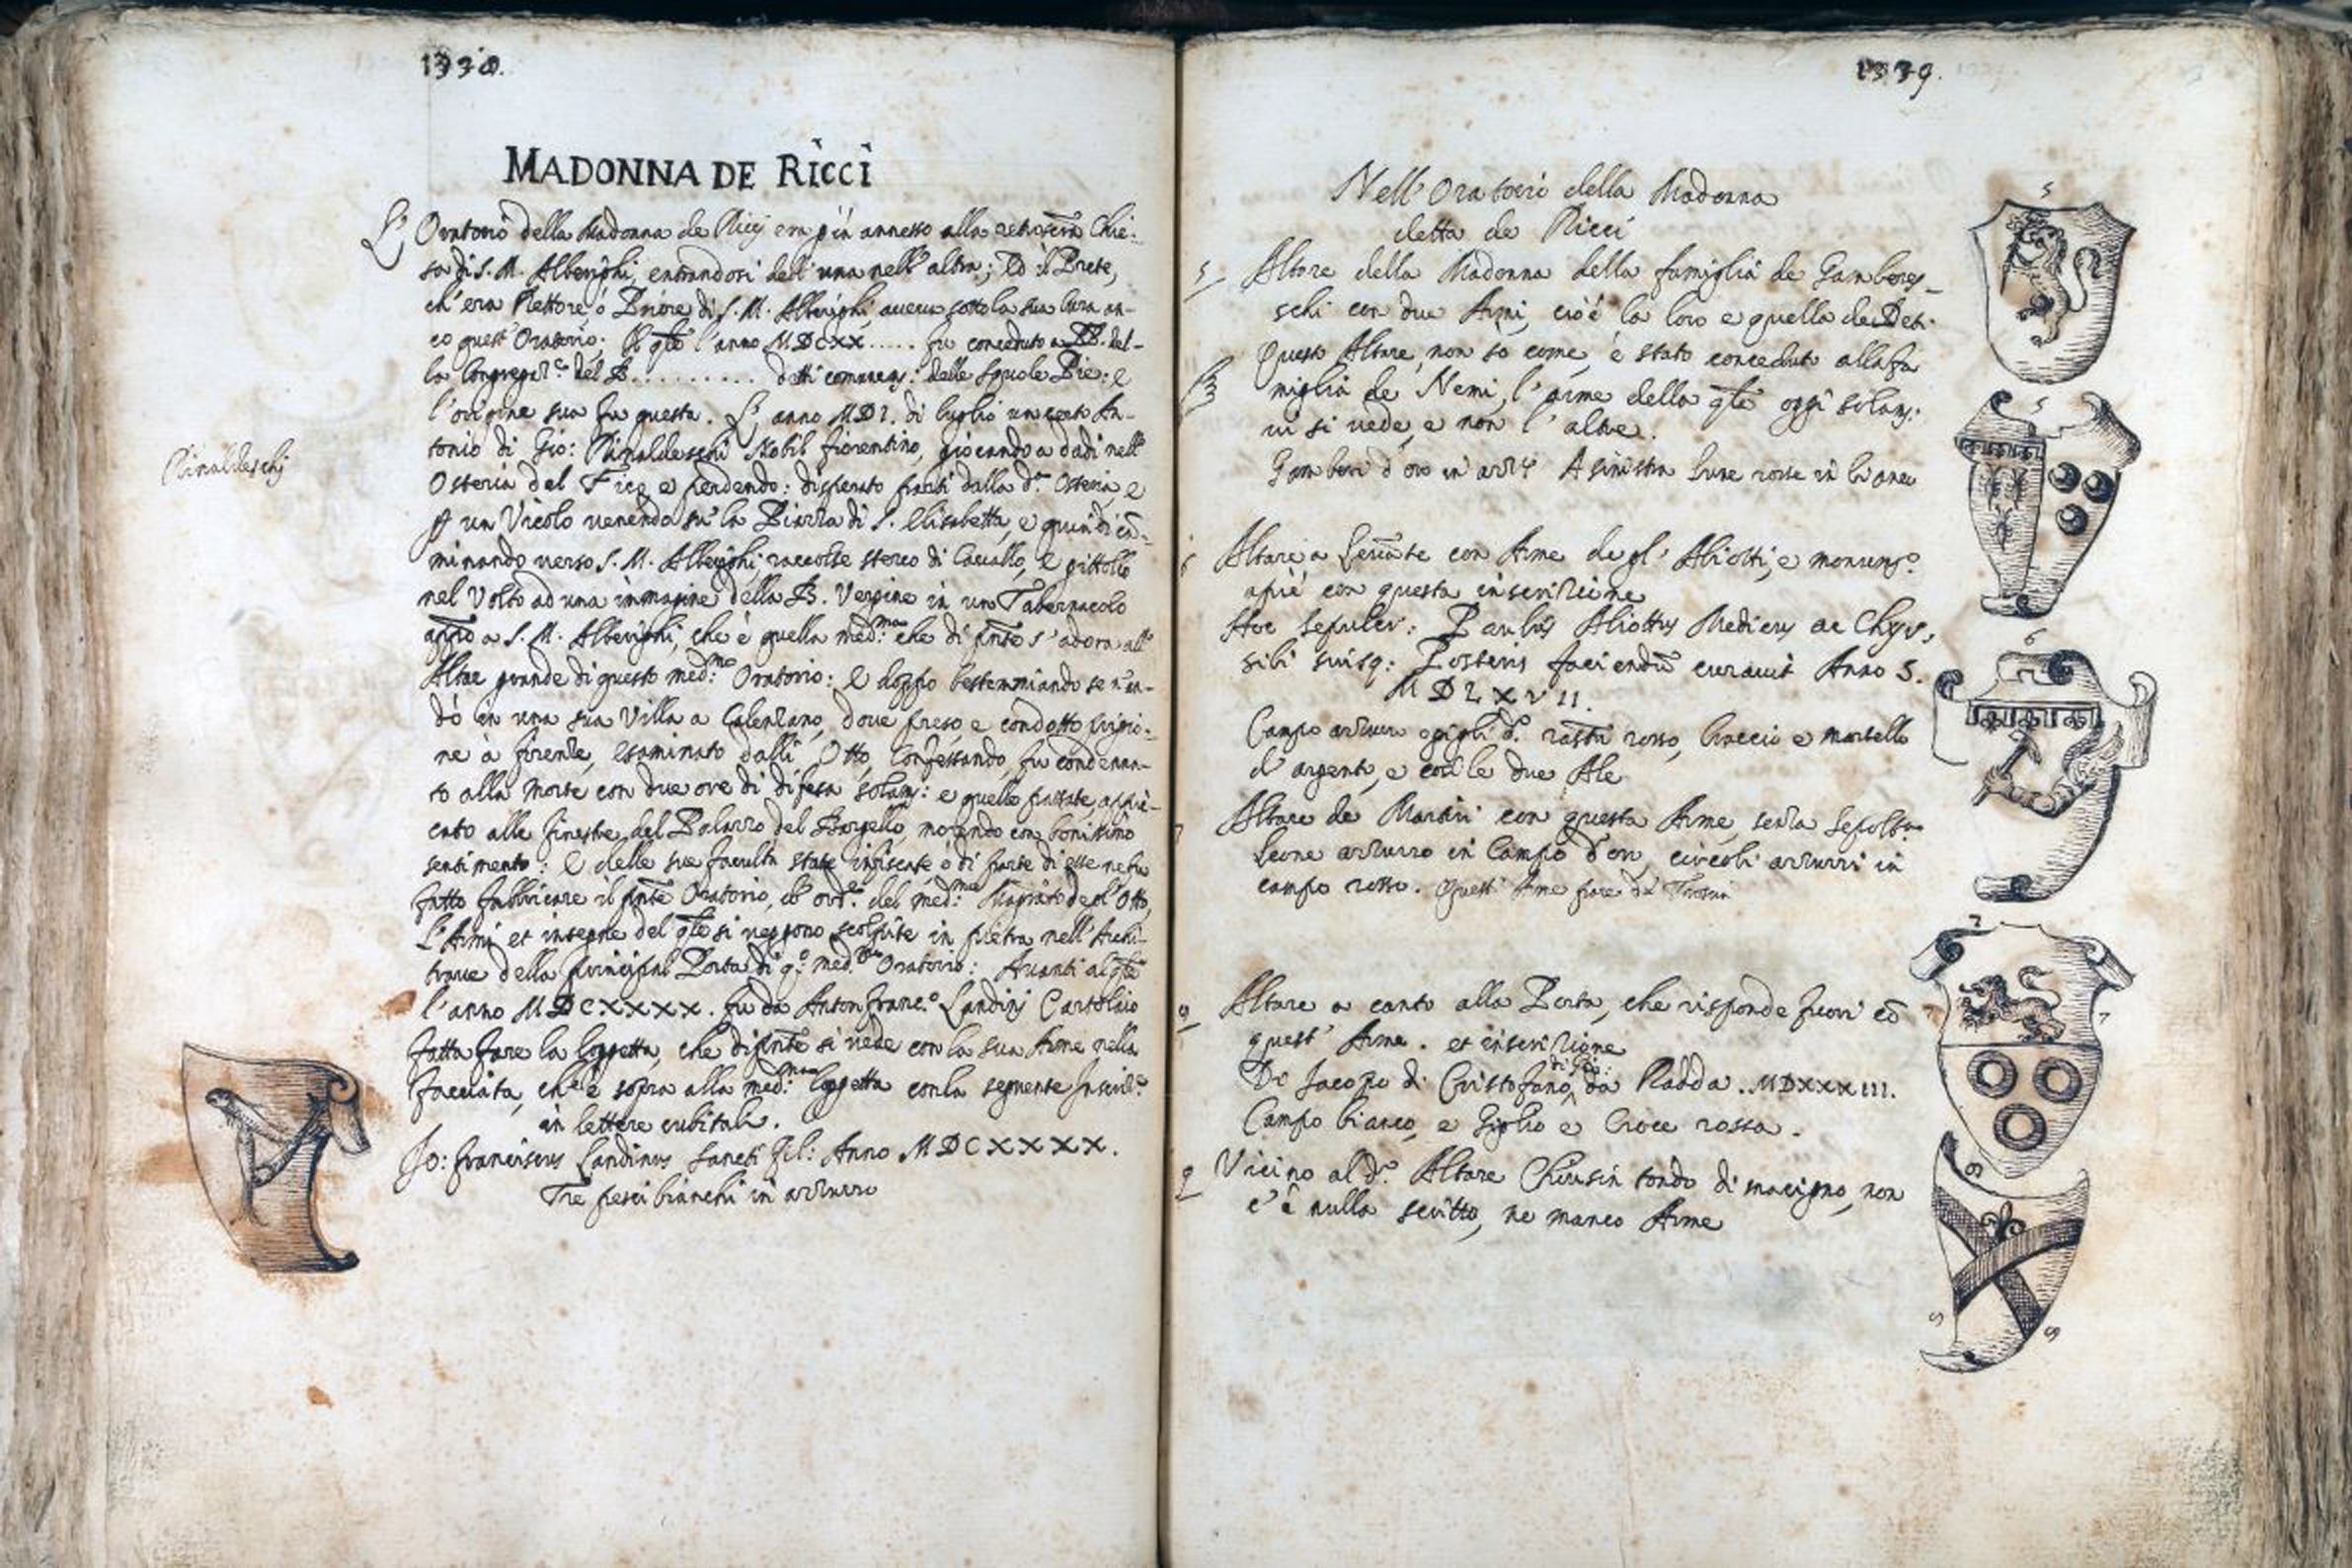 1338.
MADONNA DE RICCI
L' Oratorio della Madonna de Ricci era già annesso alla Chie-
sa di S. M. Alberighi, entrandosi dall' una nell' altra; Ed il Prete,
ch' era Rettore, ò Priore di S. M. Alberighi, aveva sotto la sua Cura an-
co quest' Oratorio; Il qle l' anno MDCXX..... fu conceduto a PP. del-
la Congregaz.e del P.......... detti comunem: delle Squole Pie: e
l' origine sua fu questa. L' anno MDI. di luglio un certo An-
tonio di Gio: Rinaldeschi Nobil fiorentino, giocando a dadi nell'
Rinaldeschi
Osteria del Fico, e perdendo: disperato partì dalla d.a Osteria e
p un Vicolo venendo su la Piazza di S. Elisabetta, e quindi cā-
minando verso S. M. Alberighi, raccolse sterco di Cavallo, e gittollo
nel Volto ad una immagine della B. Vergine in un Tabernacolo
app̄o a S. M. Alberighi, che è quella med:ma che di pn̄te s' adora all'
Altar grande di questo med:mo Oratorio: e doppo bestemmiando se n' an-
dò in una sua Villa a Calenzano, dove preso, e condotto prigio-
ne à firenze, esaminato dalli Otto, Confessando, fu condenna-
to alla morte con due ore di difesa solam: e quelle passate, appic-
cato alle finestre del Palazzo del Bargello, morendo con bonissimo
sentimento: e delle sue facultà state infiscate ò di parte di esse ne fu
fatto fabbricare il pn̄te Oratorio, d' ord.e del med:mo Magrāto degl' Otto,
L' Armi et insegne del qle si veggono scolpite in pietra nell' Archi-
trave della principal Porta di q.o med.mo Oratorio: Avanti al qle
l' anno MDCXXXX. fu da Anton Franc.o Landini Cartolaio
fatta fare la loggetta, che di pn̄te si vede con la sua Arme nella
facciata, che è sopra alla med:ma loggetta con la seguente Inscriz.e
in lettere cubitali.
Io: Franciscus Landinus Sancti Fil: Anno MDCXXXX.
Tre pesci bianchi in azzurro
1339.
Nell' Oratorio della Madonna
detta de Ricci
5 Altare della Madonna della famiglia de Gambere-
schi con due Armi, cioè la loro e quella de Deti.
Questo Altare, non so come, è stato conceduto alla fa
miglia de Nemi, l' arme della qle oggi solam:
vi si vede, e non l' altre.
Gamberi d' oro in azz.o A sinistra Lune rosse in bianco
6 Altare a Levante con Arme degl' Aliotti, e monum.o
apiè con questa inscrizione
Hoc Sepulcr: Paulus Aliottus Medicus ac
sibi suisq: Posteris faciendū curavit Anno S.
MDLXVII.
Campo azzurro gigli d. rastri rosso, braccio e martello
d' argento, e così le due Ale
7 Altare de Martini con questa Arme, senza Sepoltura
Leone azzurro in Campo d' oro, circoli azzurri in
campo rosso. Quest' Arme pare de
8 Altare a canto alla Porta, che risponde fuori cō
quest' Arme. et inscrizione
Di Jacopo di Cristofano di Gio: da Radda. MDXXXIII.
Campo bianco, e Giglio e Croce rossa.
9 Vicino al d.o Altare Chiusin tondo di macigno, non
c' è nulla scritto, ne manco Arme
5
5
6
7
7
8
9
9